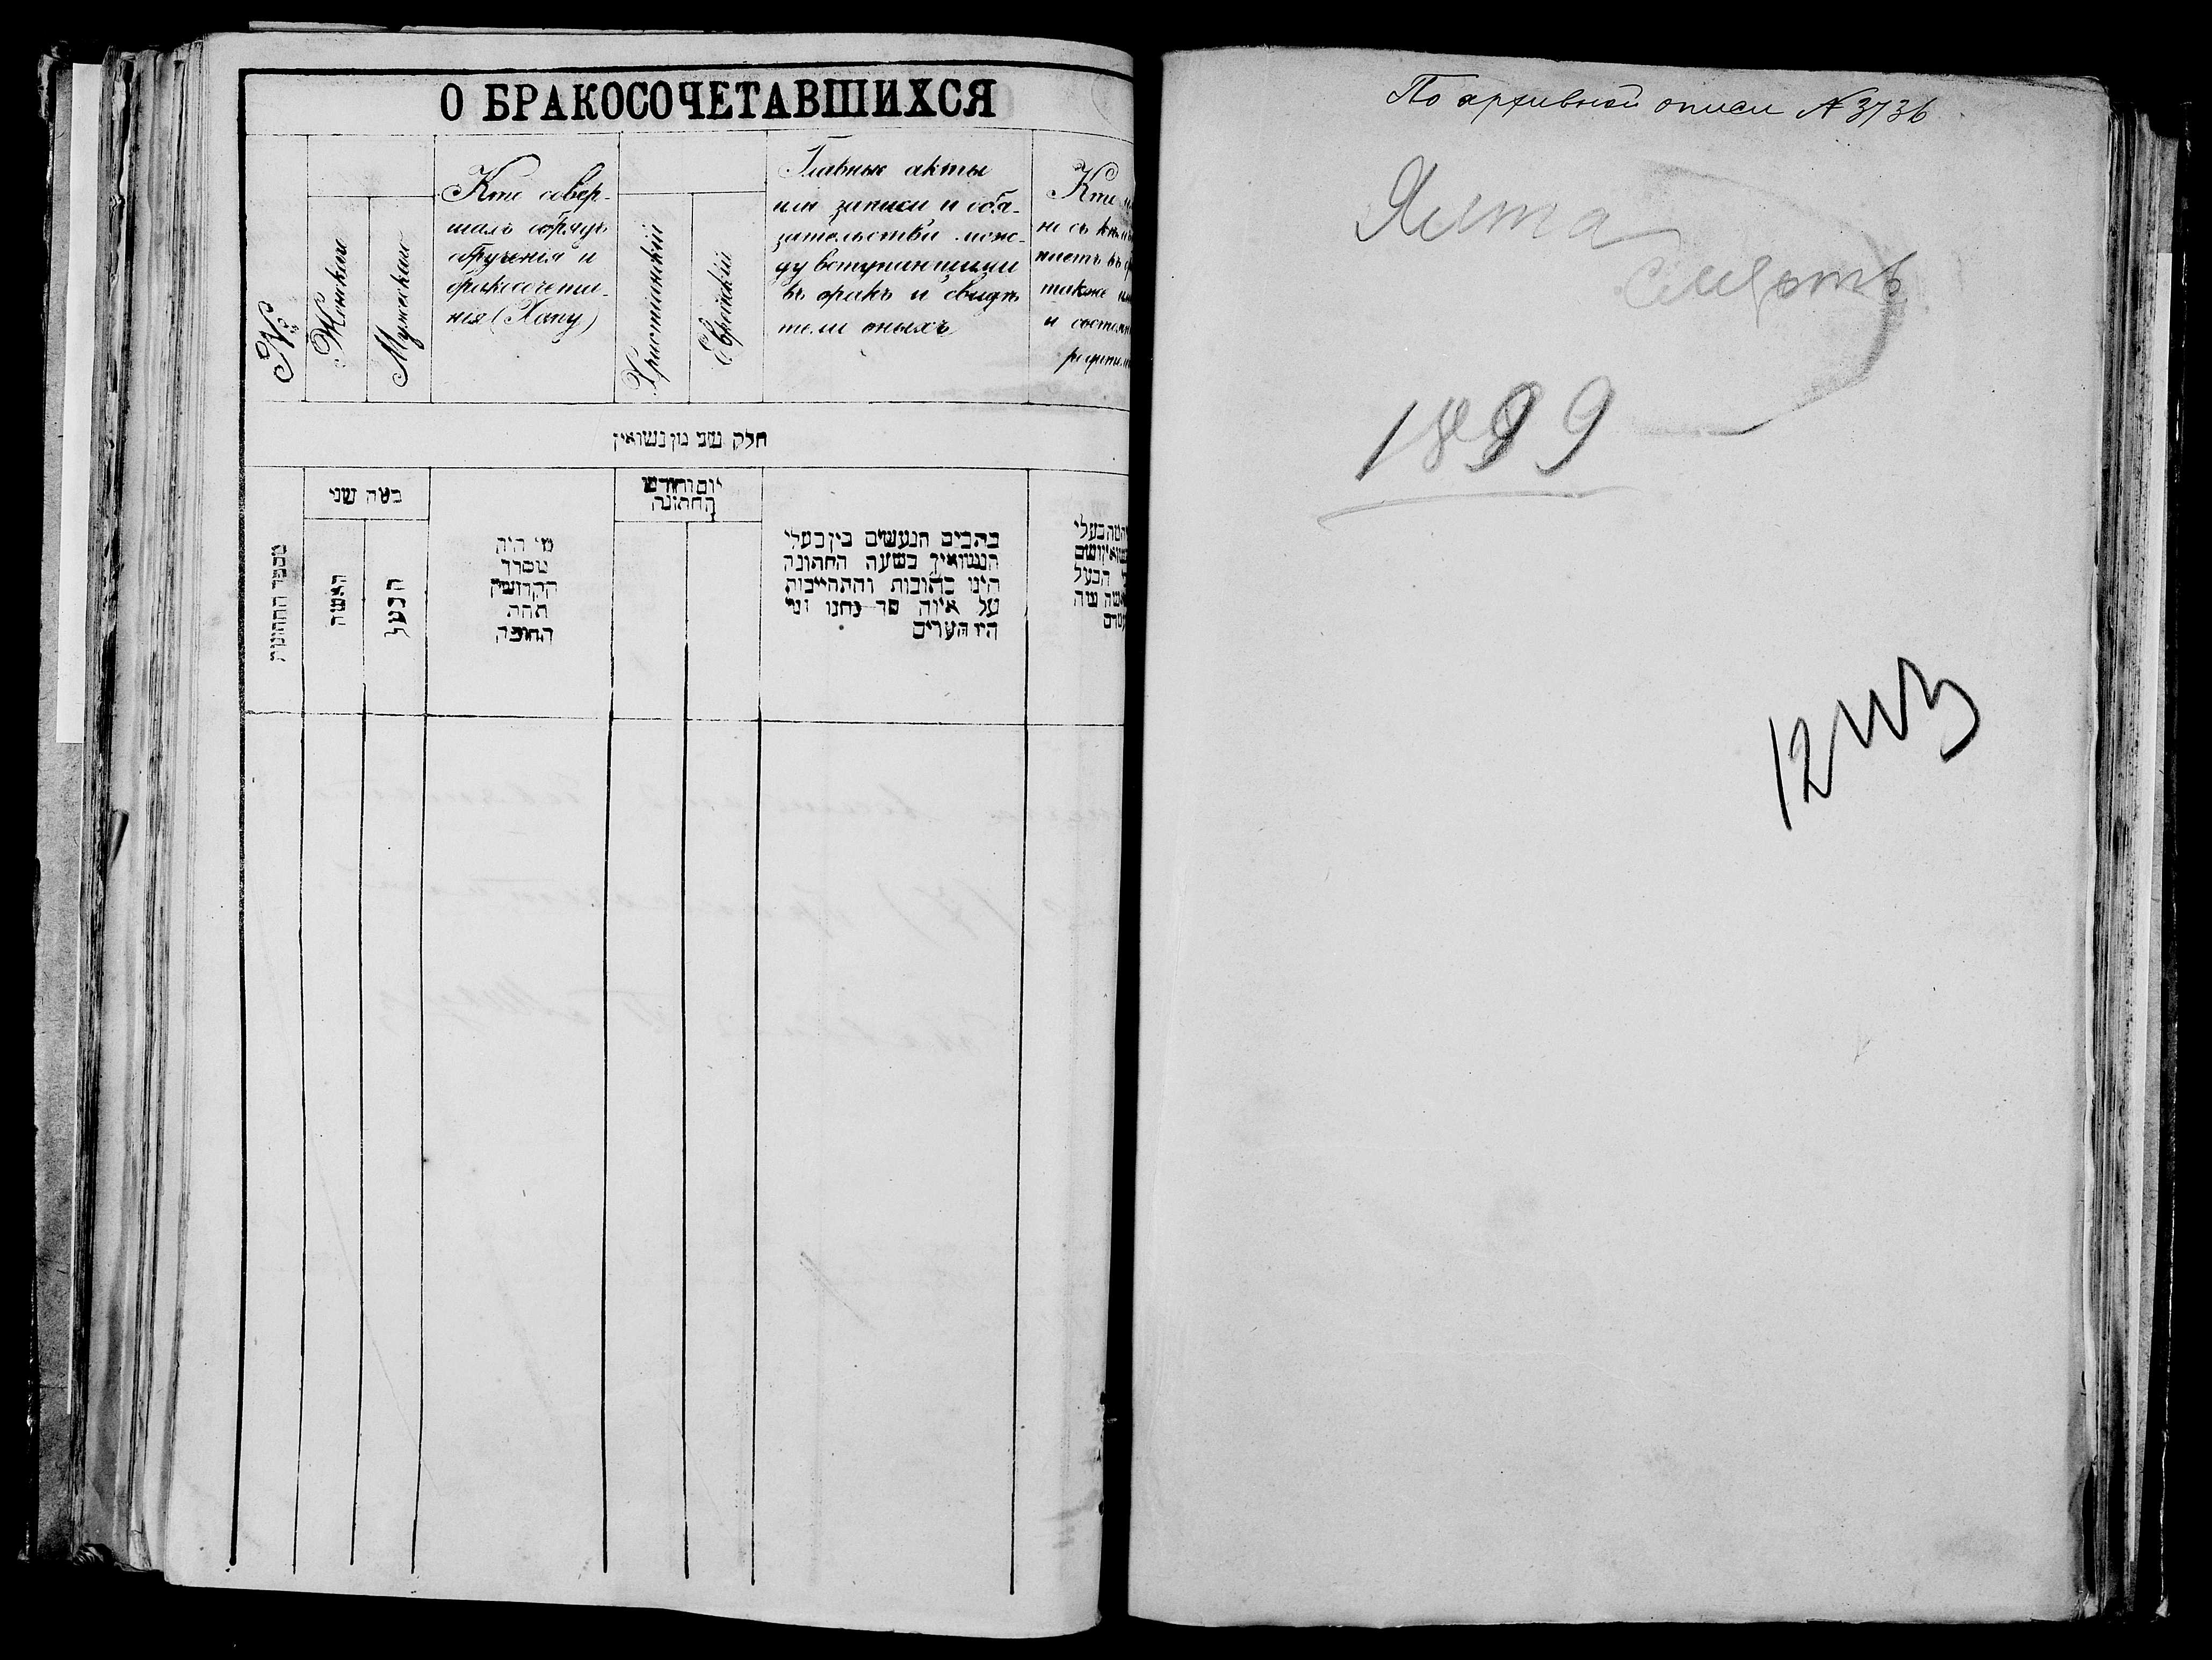 О БРАКОСОЧЕТАВШИХСЯ
№
Женскаго
Мужескаго
Кто совер-
шалъ обрядъ
обрученія и
бракосочета-
нія (Хопу)
Христіанскій
Еврейскій
Главные акты
или записи и обя-
зательства меж-
ду вступающими
въ бракъ и свидѣ
тели оныхъ
Кто
и состоян
родител
חלק שני מן נשואין
מספר החתונות
האשה
הבעל
מי היה
מסדר
הקדושין
תחת
החופה
יום וחודש
החתונה
כתבים הנעשים בין בעלי
הנשואין בשעה החתונה
היינו כתובות והתחייבות
על איזה סך נתנו ומי
היו העדים
По архивной описи № 3736
Ялта
смерть
1899